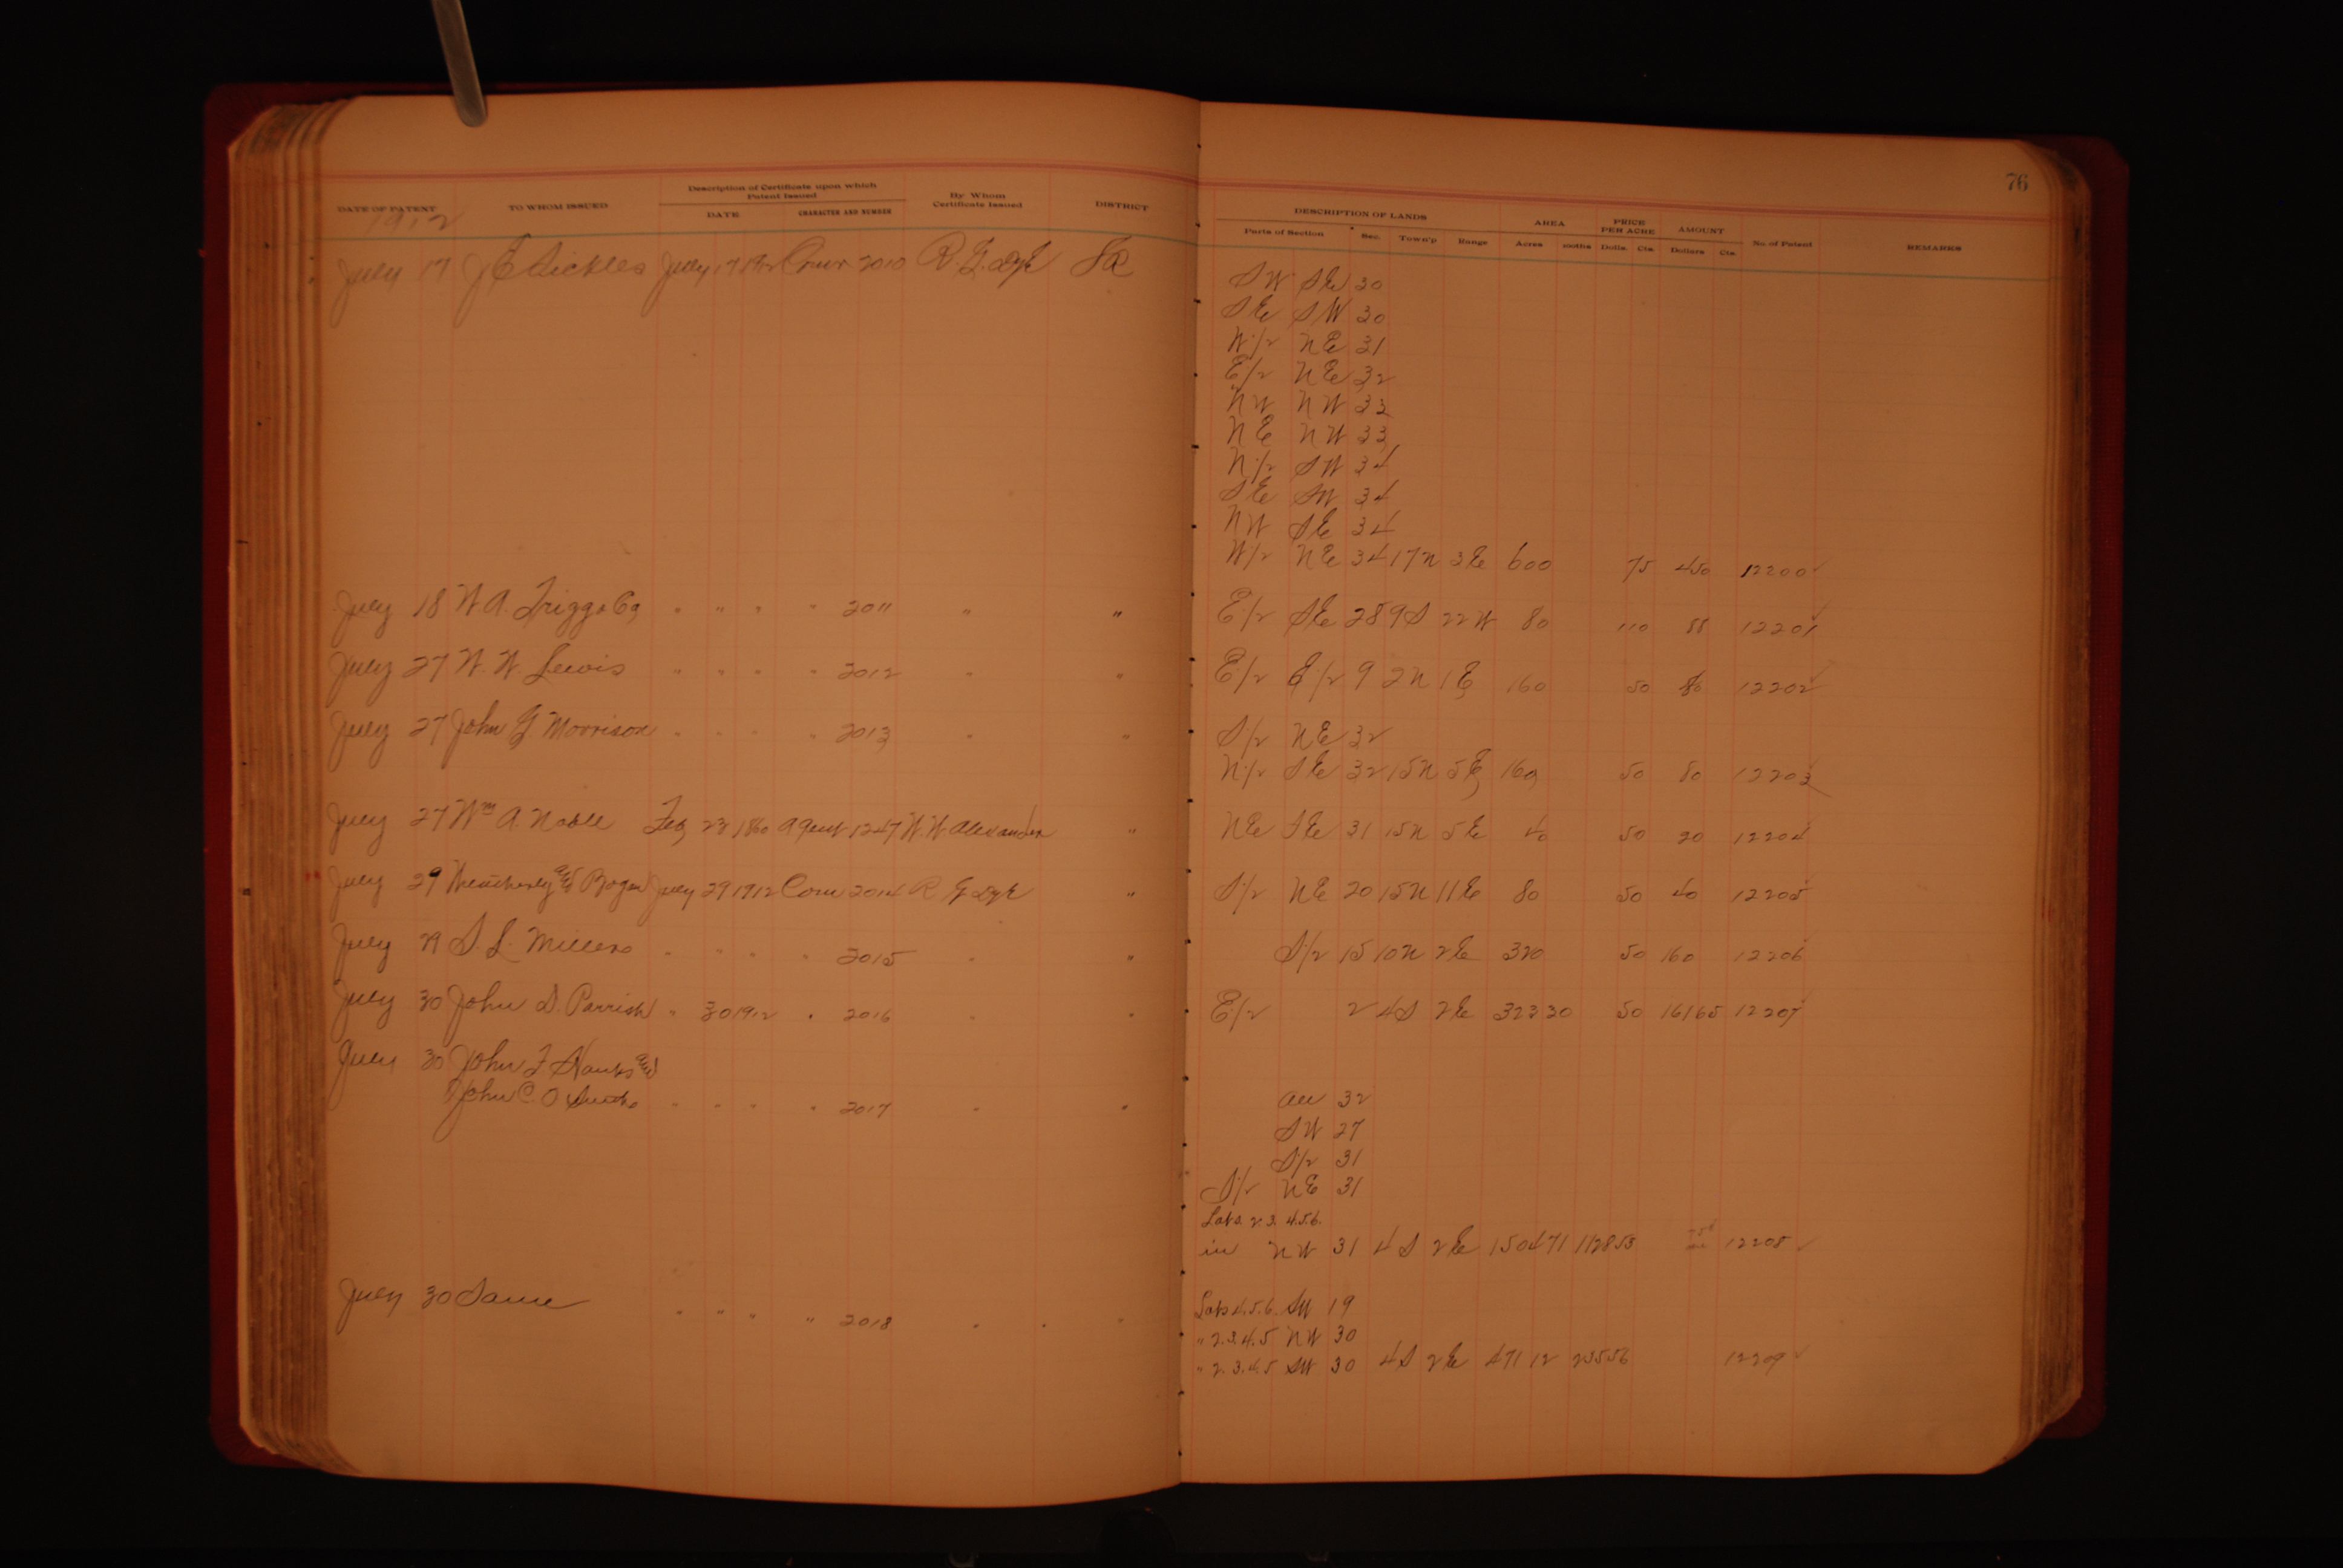 76
DATE OF PATENT TO WHOM ISSUED Description of Certificate upon which Patent Issued DATE CHARACTER AND NUMBER By Whom Certificate Issued DISTRICT
1912
DESCRIPTION OF LANDS Parts of Section Sec. Town'p Range AREA Acres PRICE PER ACRE Dolls. Cts. AMOUNT Dollars Cts. No. of Patent REMARKS
July 17 J E Sickles July 17 1912 2010 SW SE 30
SE SW 30
W/2 NE 31
E/2 NE 32
NW NW 33
NE NW 33
N/2 SW 34
SE SW 34
NW SE 34
W/2 NE 34 17N 3E 600 75 450 12200
July 18 W. A. Triggs Co " " " " 2011 " " E/2 SE 28 9S 22W 80 110 88 12201
July 27 W. W. Lewis " " " " 2012 " " E/2 E/2 9 2N 1E 160 50 80 12202
July 27 John G. Morrison " " " " 2013 " " S/2 NE 32
N/2 SE 32 15N 5E 160 50 80 12203
July 27 Wm A Noble Feb 23 1860 Agent 1247 W. W. Alexander " NE SE 31 15N 5E 40 50 20 12204
July 29 Weatherly and July 29 1912 Com 2014 " S/2 NE 20 15N 11E 80 50 40 12205
July 29 S. L. " " " " 2015 " " S/2 15 10N 2E 320 50 160 12206
July 30 John D. Parrish " 30 1912 " 2016 " " E/2 2 4S 2E 323 30 50 161 65 12207
July 30 John F and
John C. O " " " " 2017 " " All 32
SW 27
S/2 31
S/2 NE 31
Lots 2. 3. 4.5.6.
in NW 31 4S 2E 1504 71 1128 53 12208
July 30 Same " " " " 2018 " " " Lots 4.5.6. SW 19
" 2.3.4.5 NW 30
" 2.3.4.5 SW 30 4S 2E 471 12 235 56 12209